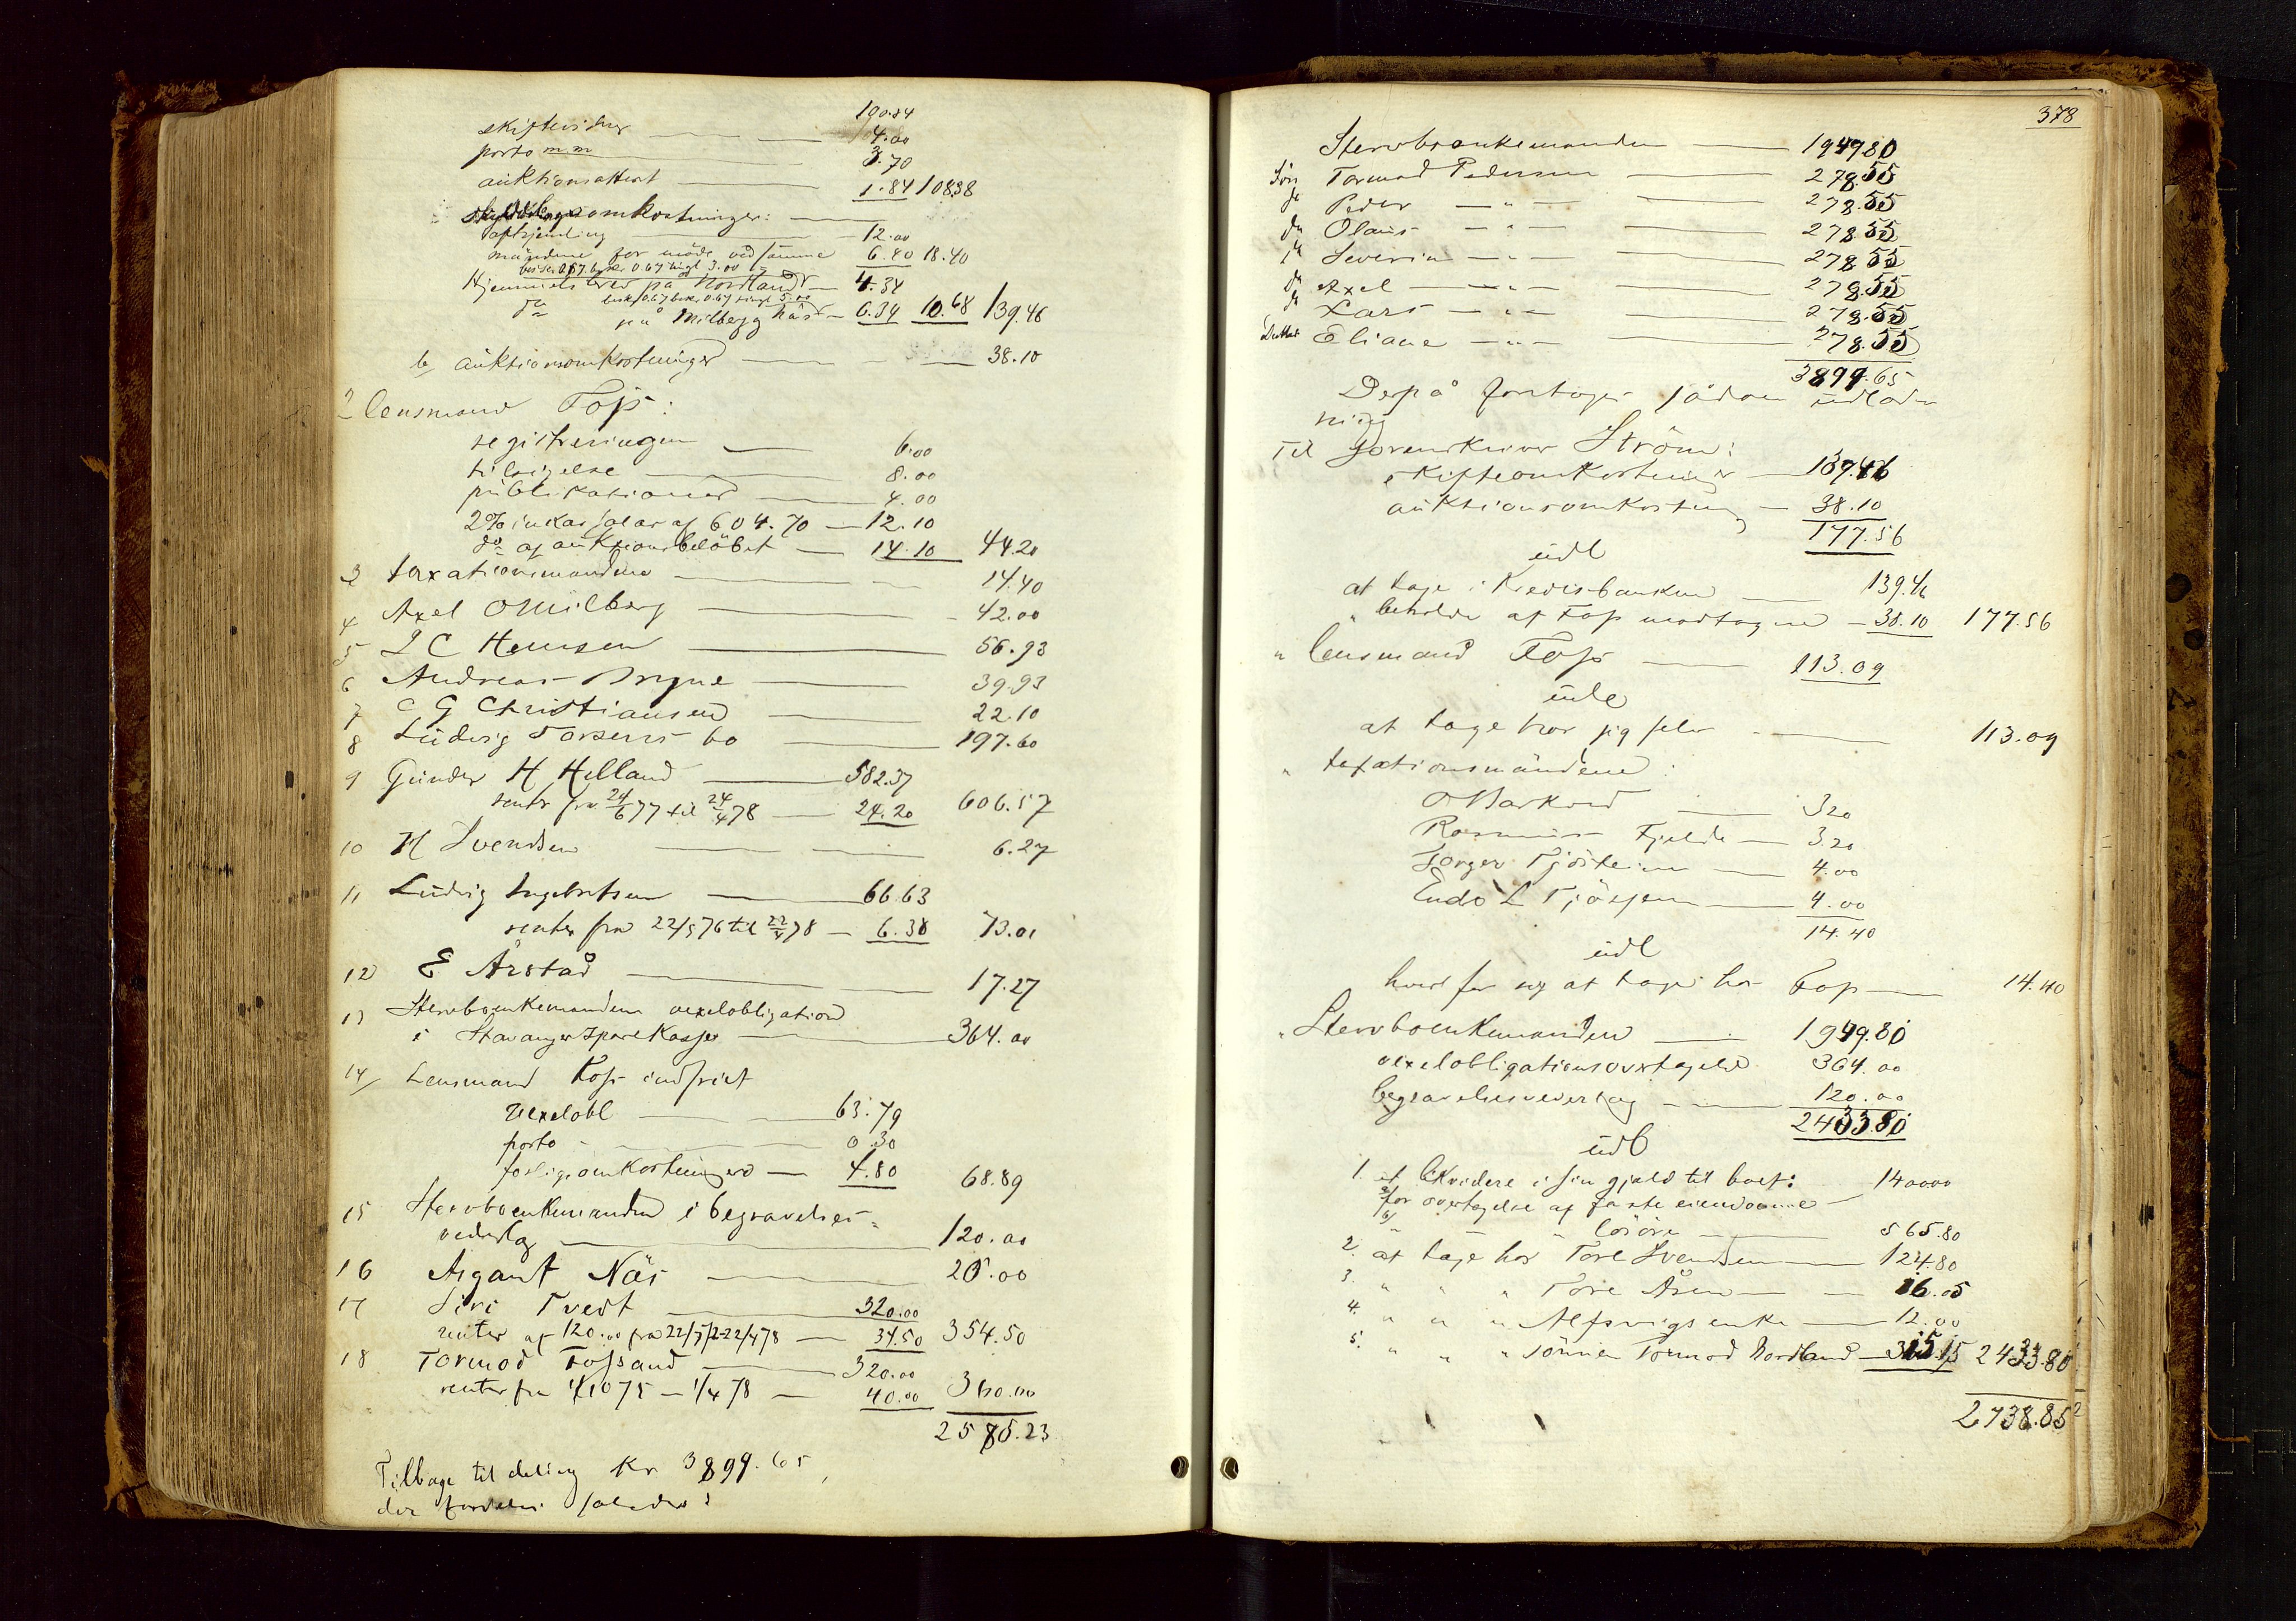 190.84
skiftevidner 4.00
porto m.m 3.70
auktionsattest 1.84 108.38
omkostninger:
12.00
mændene for møde ved samme 6.40 18.40
Hjemmelsbrev på Nordland 4.34
do på Milberg Näs 6.34 10.68 139.46
b/ auktionsomkostninger 38.10
2 Lensmand Fos:
registreringen 6.00
tilsigelse 8.00
publikationer 4.00
2% inkassalar af 604.70 12.10
do af auktionsbelöbet 14.10 44.20
3 taxationsmændene 14.40
4 Axel O Milberg 42.00
5 L C Hansen 56.93
6 Andreas Bryne 39.93
7 C G Christiansen 22.10
8 Ludvig Torsens bo 197.60
9 Gunder H Helland 582.37
renter fra 24/6 77 til 24/4 78 24.20 606.57
10 H Svendsen 6.27
11 Ludvig Ingebretsen 66.63
renter fra 22/5 76 til 22/4 78 6.38 73.01
12 E Årstad 17.27
13 Stervboenkemanden vexelobligation
i Stavanger Sparekasse 364.00
14/ Lensmand Fos indfriet
Vexelobl 63.79
porto 0.30
forligsomkostninger 4.80 68.89
15 Stervboenkemanden i begravelses-
vederlag 120.00
16 Asgaut Näs 20.00
17 Siri Tvedt 320.00
renter af 120.00 fra 22/5 72-22/4 78 34.50 354.50
18 Tormod Fossand 320.00
renter fra 1/10 75 - 1/4 78 40.00 360.00
2585.23
Tilbage til deling Kr 3899.65
der fordeles saaledes:
378
Stervboenkemanden 1949.80
Sön Tormod Pedersen 278.55
do Peder - " - 278.55
do Olaus - " - 278.55
do Severin - " - 278.55
do Axel - " - 278.55
do Lars - " - 278.55
Datter Eliane - " - 278.55
3899.65
Derpå foretoges sådan udlæg
ning
Til Sorenskriver Ström:
skifteomkostninger 139.46
auktionsomkostning 38.10
177.56
udl
at tage i Kreditbanken 139.46
" beholde af Fos modtagne 38.10 177.56
" Lensmand Fos 113.09
udl
at tage hos sig selv 113.09
" taxationsmændene:
O Markved 3.20
Rasmus Fjelde 3.20
Torger Tjöstem 4.00
Endo L Tjössem 4.00
14.40
udl
hver for sig at tage hos Fos 14.40
" Stervboenkemanden 1949.80
vexelobligationsovertagelse 364.00
begravelsesvederlag 120.00
2433.80
udl
1. at likvidere i sin gjæld til boet:
a/ for overtagelse af faste eiendomme 1400.00
b/ " " " lösöre 565.80
2. at tage hos Tore Svendsen 124.80
3. " " " Tore Åsen 16.05
4. " " " Alfsvigs enke 12.00
5. " " " sönnen Tormod Nordland 315.15 2433.80
2738.85